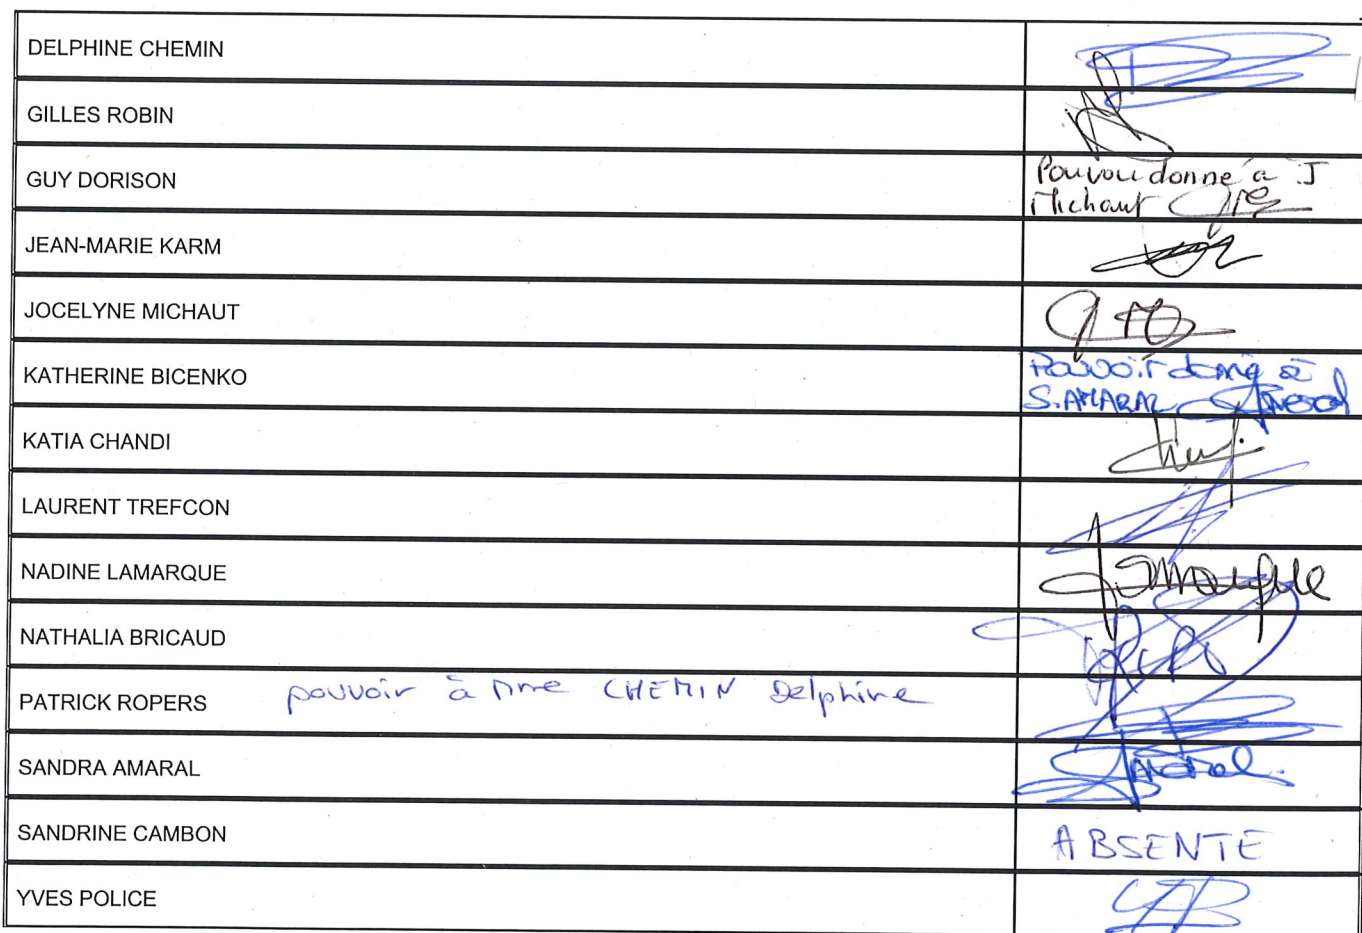 DELPHINE CHEMIN
GILLES ROBIN
GUY DORISON
Pouvoir donné à J
Michaut
JEAN-MARIE KARM
JOCELYNE MICHAUT
KATHERINE BICENKO
Pouvoir donné à
S. AMARAL Amaral
KATIA CHANDI
LAURENT TREFCON
NADINE LAMARQUE
Lamarque
NATHALIA BRICAUD
PATRICK ROPERS pouvoir à Mme CHEMIN Delphine
SANDRA AMARAL
Amaral
SANDRINE CAMBON
ABSENTE
YVES POLICE